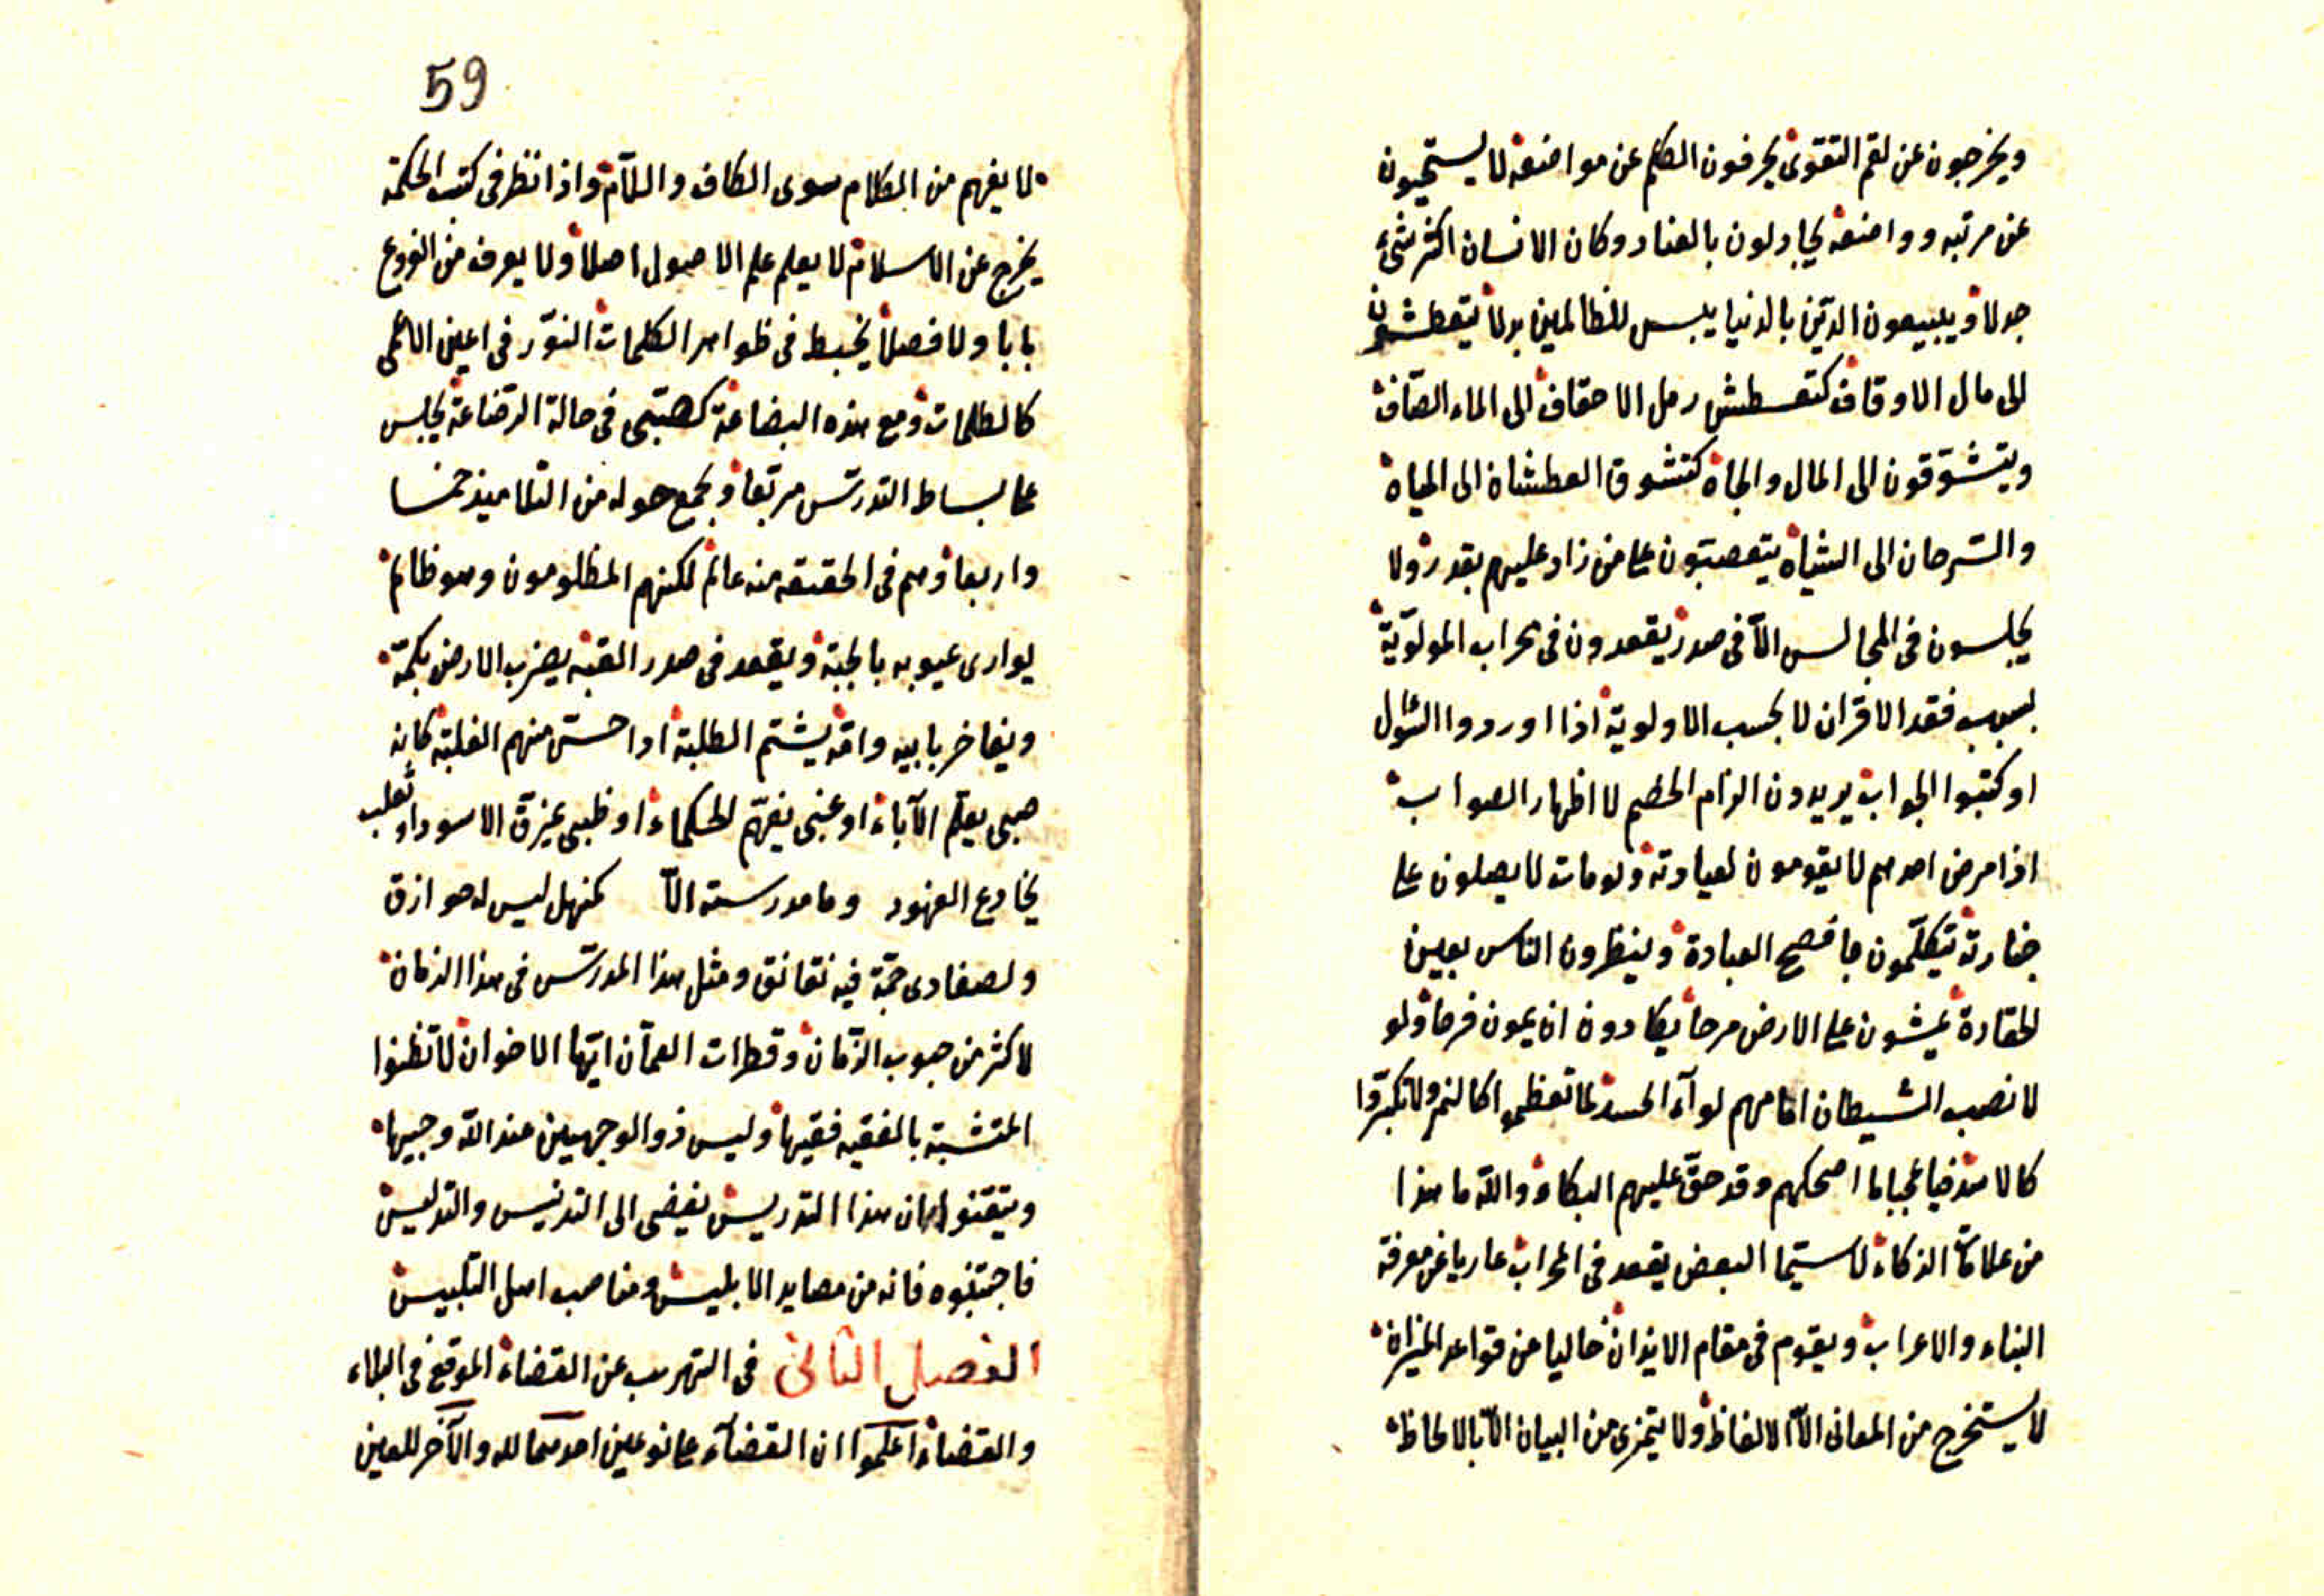 ويخرجون عن لقم التقوى يحرفون الكلم عن مواضعه لا يستحيون
عن مرتبه وواضعه يجادلون بالعناد وكان الانسان اكثر شئ
جدلا ويبيعون الدين بالدنيا بيس للظالمين بدلا يتعطشون
الى مال الاوقاف كتعطش رمل الاحقاف الى الماء الصاف
ويتشوقون الى المال والجاه كتشوق العطشان الى المياه
والسرحان الى الشياه يتعصبون على من زاد عليهم بقدر ولا
يجلسون فى المجالس الا فى صدر يقعدون فى محراب المولوية
بسبب فقد الاقران لا بحسب الاولوية اذا اوردوا السؤل
او كتبوا الجواب يريدون الزام الخصم لا اظهار الصواب
اذا مرض احدهم لا يقومون لعيادته ولو مات لا يصلون على
جنازته يتكلمون بافصح العبادة وينظرون الناس بعين
الحقارة يمشون على الارض مرحا يكادون ان يمون فرحا ولو
لا نصب الشيطان امامهم لوآء الحسد لما تعظموا كالنمر ولا تكبروا
كالاسد فيا عجبا ما اضحكهم وقد حق عليهم البكاء والله ما هذا
من علامات الذكاء لا سيما البعض يقعد فى المحراب عاريا عن معرفة
البناء والاعراب ويقوم فى مقام الايذان خاليا عن قواعد الميزان
لا يستخرج من المعانى الا الالفاظ ولا يتميزى من البيان الا بالالحاظ
59
لا يفهم من الكلام سوى الكاف واللآم واذا نظر فى كتب الحكمة
يخرج عن الاسلام لا يعلم علم الاصول اصلا ولا يعرف من الفروع
بابا ولا فصلا يخبط فى ظواهر الكلمات النور فى اعين الاعمى
كالظلمات ومع هذه البضاعة كصبى فى حالة الرضاعة يجلس
على بساط التدرس مربعا ويجمع حوله من التلاميذ خمسا
واربعا وهم فى الحقيقه منه عالم لكنهم المظلومون وهو ظالم
يوارى عيوبه بالجبة ويقعد فى صدر القبه يضرب الارض بكمه
ويفاخر بابيه وامه يشتم الطلبة اذا احس منهم الغلبة كانه
صبى يعلم الآباء او غبى يفهم الحكماء او ظبى غرة الاسود او ثعلب
يخادع الفهود وما مدرسته الا كمنهل ليس له حوازق
ولضفادى جمة فيه نقانق ومثل هذا المدرس فى هذا الزمان
لاكثر من حبوب الرمان وقطرات العمان ايها الاخوان لا تظنوا
المتشبه بالفقيه فقيها وليس ذو الوجهين عند الله وجيها
وتيقنوا ان هذا التدريس يفضى الى التدنيس والتدليس
فاجتنبوه فانه من مصايد الابليس ومناصب اهل التلبيس
الفصل الثانى فى التهريب عن القضاء الموقع فى البلاء
والقضاء اعلموا ان القضآء على نوعين احدهما لله والآخر للعين